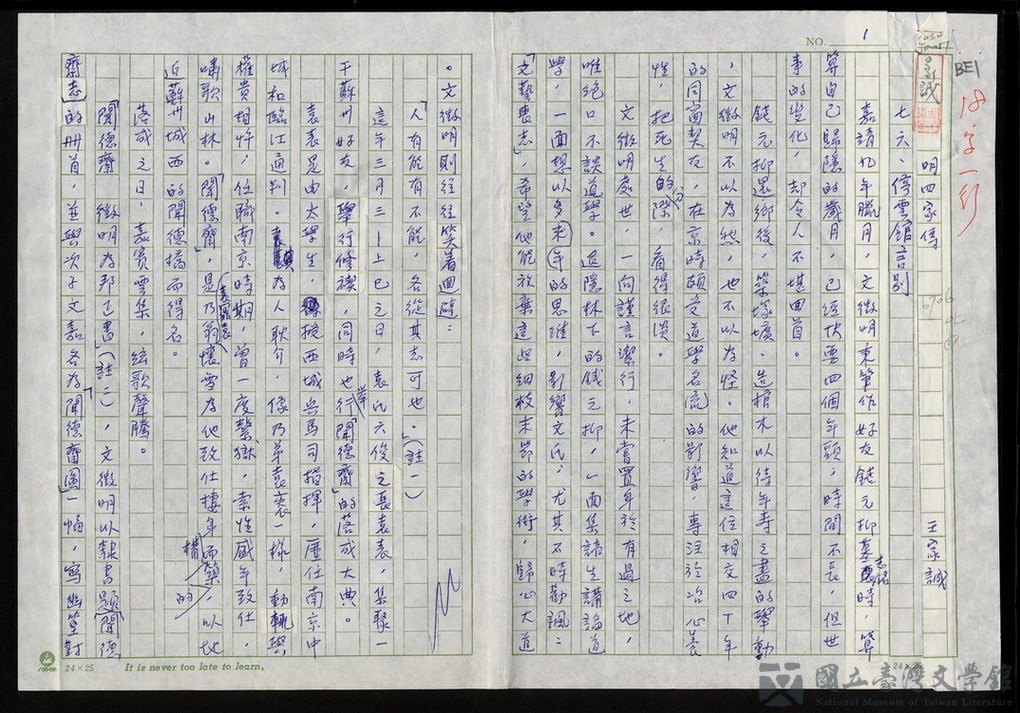 NO. 1
BE1
18字一行
王家誠
明四家傳 王家誠
七六、停雲館言別
嘉靖九年臘月，文徵明秉筆作好友錢元抑墓誌銘時，算
算自己歸隱的歲月，已經快要四個年頭，時間不長，但世
事的變化，卻令人不堪回首。
錢元抑還鄉後，築塚壙、造棺木以待年壽之盡的舉動
，文徵明不以為然，也不以為怪。他知道這位相交四十年
的同窗契友，在京時頗受道學名流的影響，專注於治心養
性，把死生的分際，看得很淡。
文徵明處世，一向謹言潔行，未嘗置身於有過之地，
唯絕口不談道學。退隱林下的錢元抑，一面集諸生講論道
學，一面想以多年來的思維，影響文氏，尤其不時勸諷：
「文藝喪志」，希望他能放棄這些細枝末節的學術，歸心大道
。文徵明則往往笑着回避：
「人有能有不能，各從其志可也。」（註一）
這年三月三十上巳之日，袁氏六俊之長袁表，集聚一
干蘇州好友，舉行修禊，同時也舉行「聞德齋」的落成大典。
袁表是由太學生，授西城兵馬司指揮，歷任南京中
城和臨江通判。為人耿介，像乃弟袁袠一樣，動輒與
權貴相忤，任職南京時期，曾一度繫獄，索性盛年致仕，
嘯歌山林。「聞德齋」，是乃翁袁懷雪為他致仕棲身而構築的，以地
近蘇州城西的聞德橋而得名。
落成之日，嘉賓雲集，絃歌聲騰。
「聞德齋 徵明為邦正書」（註二），文徵明以隸書題「聞德
齋志」的冊首，並與次子文嘉各為「聞德齋圖」一幅，寫幽篁對
24×25 It is never too late to learn.
24×25
國立臺灣文學館
National Museum of Taiwan Literature